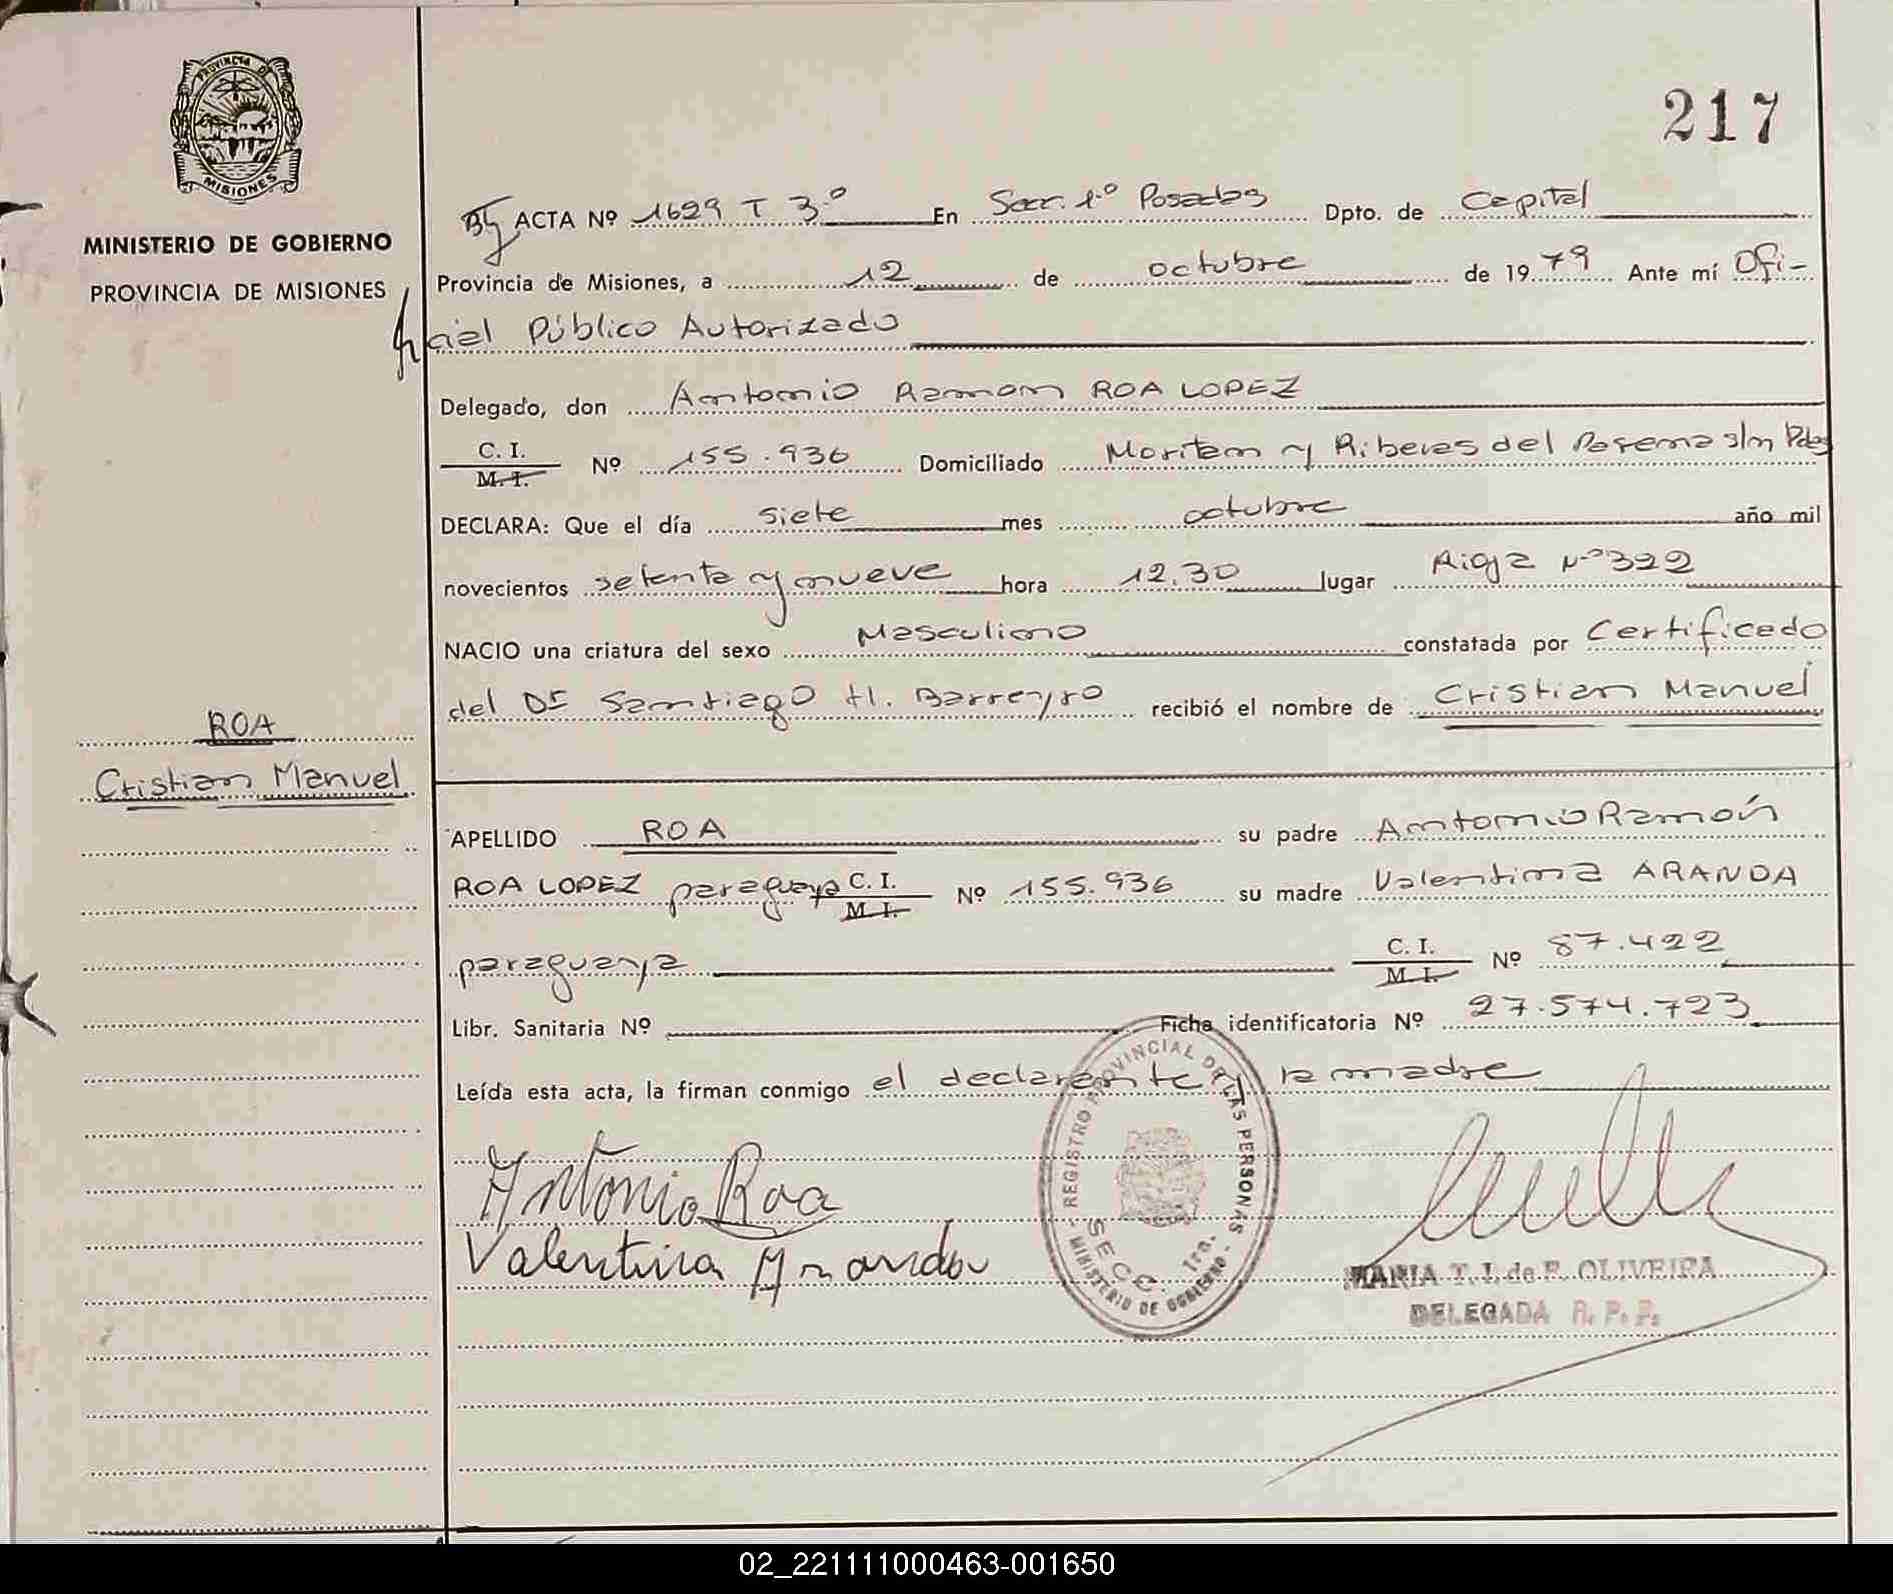 217
PROVINCIA DE
MISIONES
MINISTERIO DE GOBIERNO
PROVINCIA DE MISIONES
ACTA Nº 1629 T 3.º En Secc. 1.º Posadas Dpto. de Capital
Provincia de Misiones, a 12 de octubre de 1979 Ante mí Ofi-
cial Público Autorizado
Delegado, don Antonio Ramon ROA LOPEZ
C. I.
M. I. Nº 155.936 Domiciliado y Riberas del s/n Pdas
DECLARA: Que el día siete mes octubre año mil
novecientos setenta y nueve hora 12.30 lugar Nº 322
NACIO una criatura del sexo Masculino constatada por Certificado
del Dr Santiago H. Barreyro recibió el nombre de Cristian Manuel
ROA
Cristian Manuel
APELLIDO ROA su padre Antonio Ramón
ROA LOPEZ paraguayo C. I.
M. I. Nº 155.936 su madre Valentina ARANDA
paraguaya C. I.
M. I. Nº 87.422
Libr. Sanitaria Nº Ficha identificatoria Nº 27.574.723
Leída esta acta, la firman conmigo el declarante y la madre
REGISTRO PROVINCIAL DE LAS PERSONAS
SECC. 1ra.
MINISTERIO DE GOBIERNO
Antonio Roa
Valentina Aranda
MARIA T. I. de F. OLIVEIRA
DELEGADA R. P. P.
02_221111000463-001650